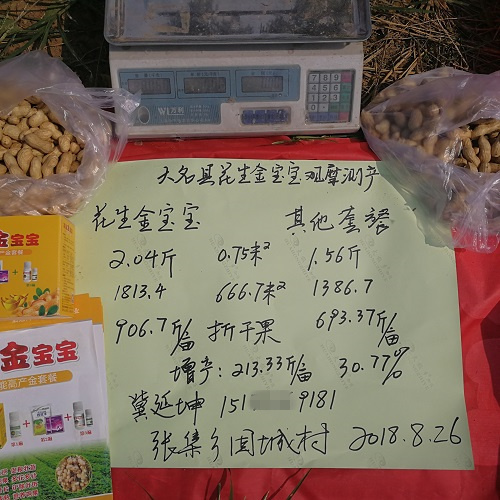 7 8 9
4 5 6
1 2 3
W1万鹏
大名县花生金宝宝观摩测产
花生金宝宝 其他套餐
2.04斤 0.75米² 1.56斤
1813.4 666.7米² 1386.7
906.7斤/亩 折干果 693.37斤/亩
增产:213.33斤/亩 30.77%
冀延坤 151 9181
张集乡国城村 2018.8.26
金宝宝
金宝宝
高产金套餐